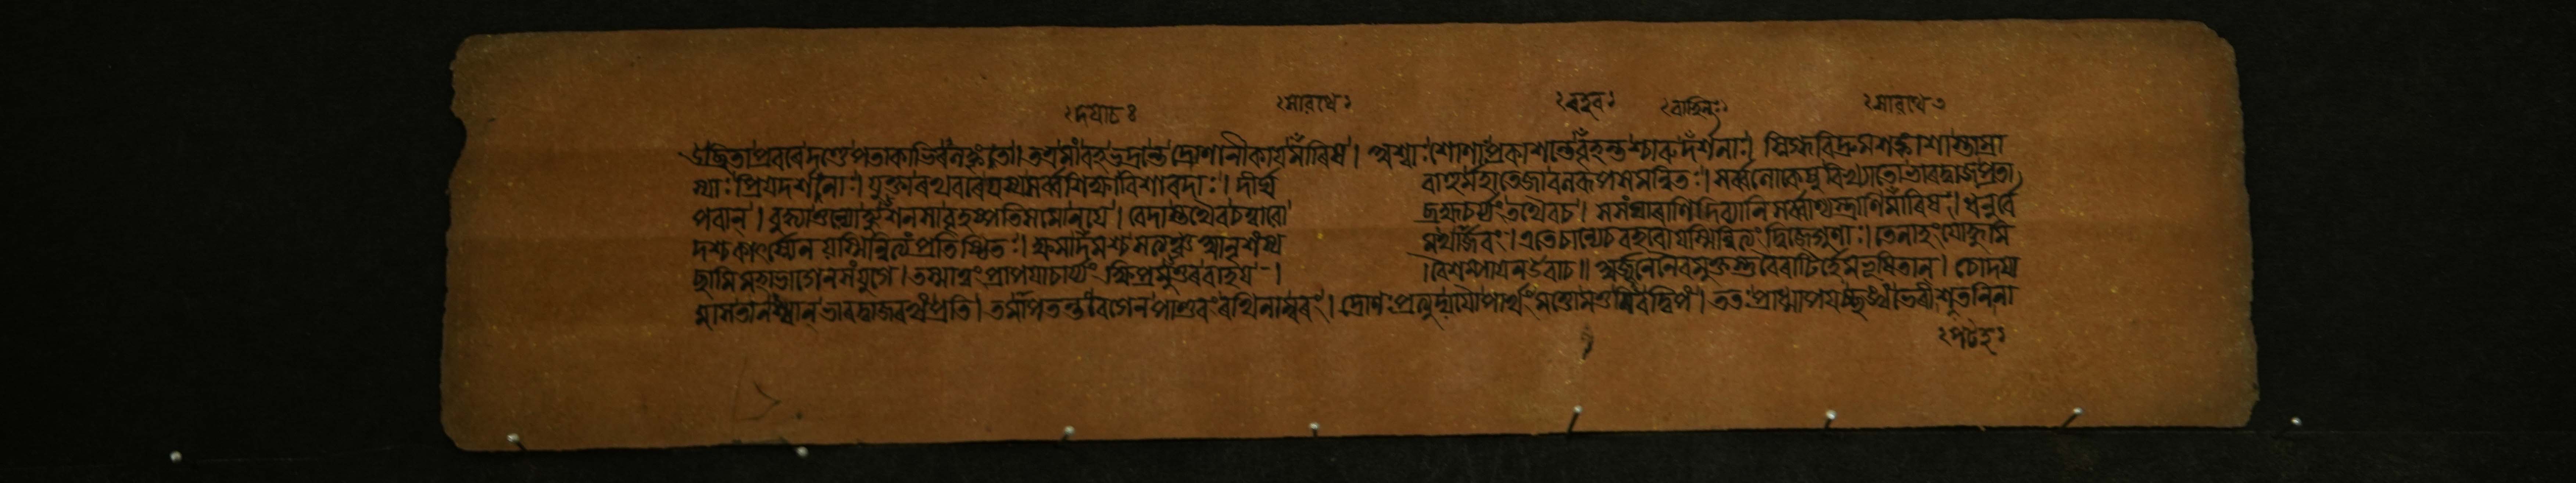 দযোচঃ মারথে বহুব বাহিনঃ মারথে
উচ্ছ্রিতা প্রবরে দণ্ডে পতাকাভিরলঙ্কৃতা। তত্র মাং বহ ভদ্রন্তে দ্রোণানীকায় মারিষ। অশ্বাঃ শোণাঃ প্রকাশন্তে বৃহন্তশ্চারুদর্শনাঃ। স্নিগ্ধবিদ্রুমশঙ্কাশাস্তাম্রা
স্যাঃ প্রিয়দর্শনাঃ। যুক্তা রথবরে যস্য সর্ব্বশিক্ষাবিশারদাঃ। দীর্ঘ বাহুর্মহাতেজা বলরূপসমন্বিতঃ। সর্ব্বলোকেষু বিখ্যাতো ভারদ্বাজঃ প্রতা
পবান্। বুদ্ধ্যা তুল্যো হ্যুশনসা বৃহস্পতিসমো নয়ে। বেদাস্তথৈব চত্বারো ব্রহ্মচর্য্যং তথৈব চ। সসংহারাণি দিব্যানি সর্ব্বাণ্যস্ত্রাণি মারিষ। ধনুর্ব্বে
দশ্চ কার্ৎস্ন্যেন যস্মিন্নিত্যং প্রতিষ্ঠিতঃ। ক্ষমা দমশ্চ সত্যঞ্চ আনৃশংস্য মথার্জ্জবং। এতে চান্যে চ বহবো যস্মিন্নিত্যং দ্বিজে গুণাঃ। তেনাহং যোদ্ধুমি
চ্ছামি মহাভাগেন সংযুগে। তস্মাত্ত্বং প্রাপয়াচার্য্যং ক্ষিপ্রমুত্তর বাহয়। বৈশম্পায়ন উবাচ॥ অর্জ্জুনেনৈবমুক্তস্তু বৈরাটির্হেমভূষিতান্। চোদয়া
মাস তানশ্বান্ ভারদ্বাজরথং প্রতি। তমাপতন্তং বেগেন পাণ্ডবং রথিনাম্বরং। দ্রোণঃ প্রত্যুদ্যযৌ পার্থং মত্তো মত্তমিব দ্বিপং। ততঃ প্রাধ্মাপয়চ্ছঙ্খং ভেরীশতনিনা
পটহ